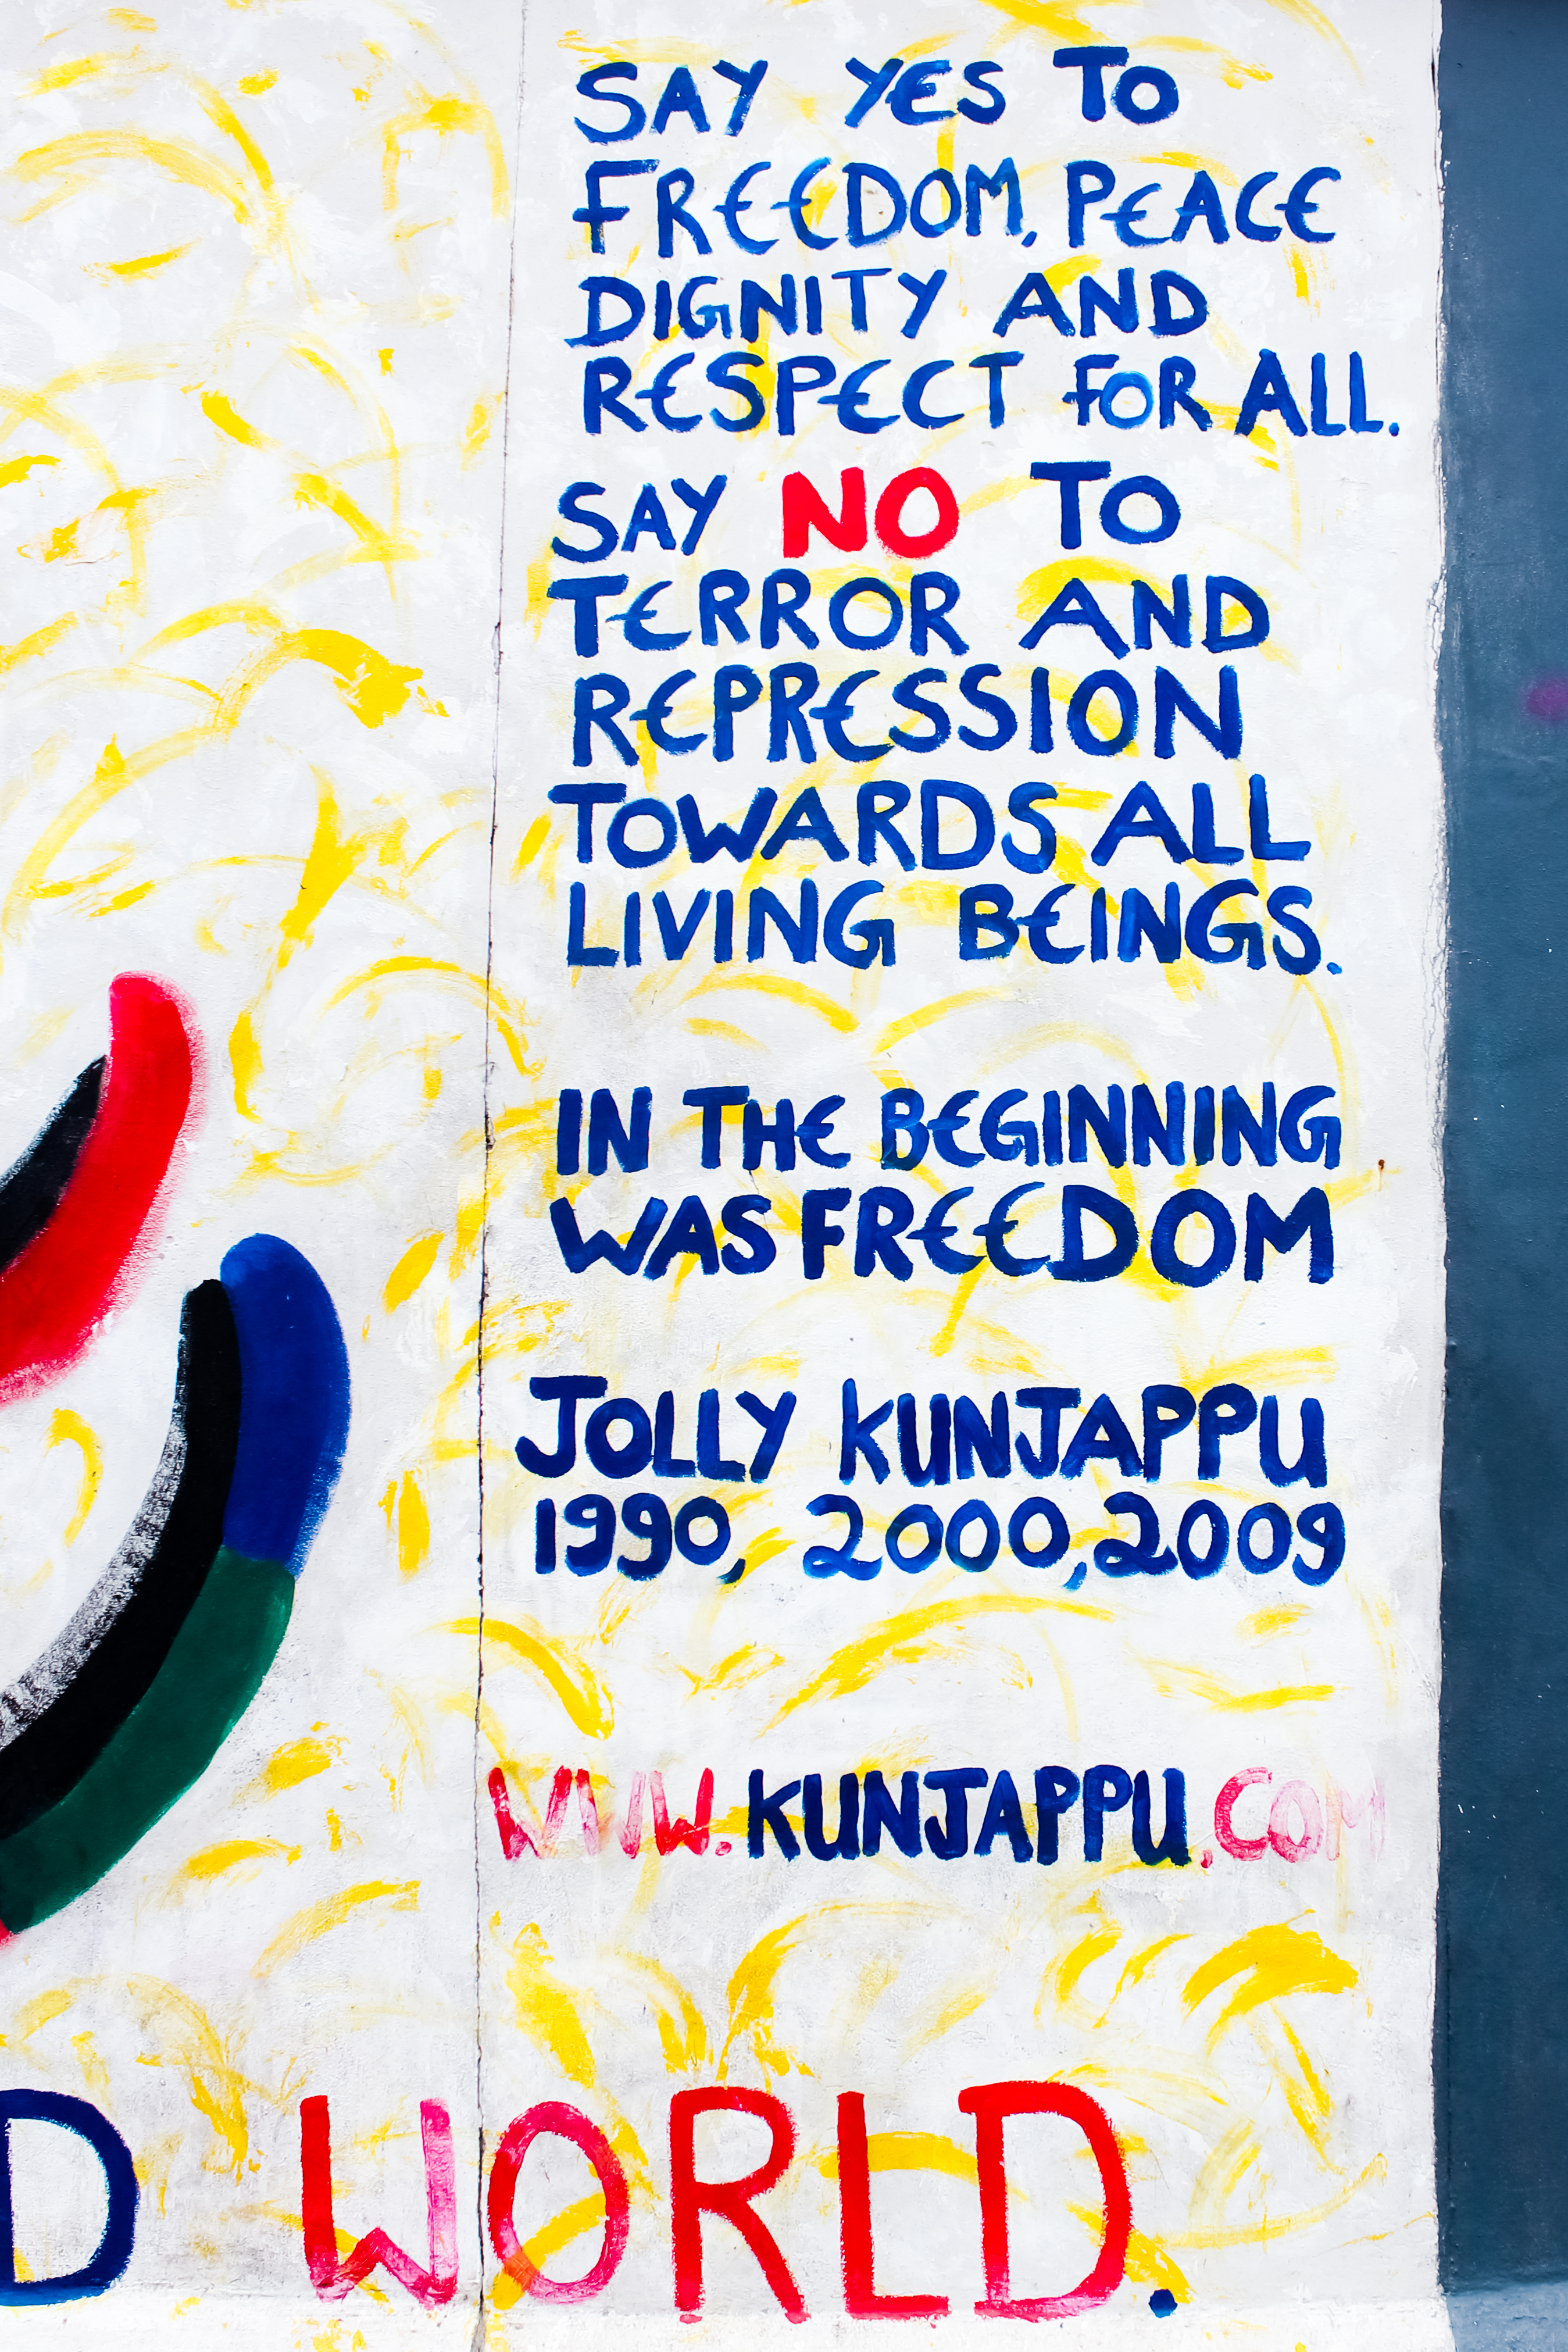 SAY YES TO
FREEDOM, PEACE
DIGNITY AND
RESPECT FOR ALL.
SAY NO TO
TERROR AND
REPRESSION
TOWARDS ALL
LIVING BEINGS.
IN THE BEGINNING
WAS FREEDOM
JOLLY KUNJAPPU
1990, 2000, 2009
WWW.KUNJAPPU.COM
D WORLD.